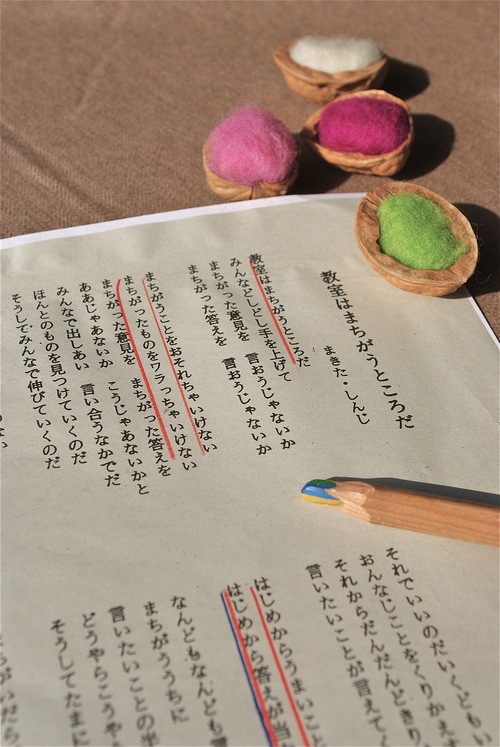 教室はまちがうところだ
まきた・しんじ
教室はまちがうところだ
みんなどしどし手を上げて
まちがった意見を　言おうじゃないか
まちがった答えを　言おうじゃないか
まちがうことをおそれちゃいけない
まちがったものをワラっちゃいけない
まちがった意見を　まちがった答えを
ああじゃあないか　こうじゃあないかと
みんなで出しあい　言い合うなかでだ
ほんとのものを見つけていくのだ
そうしてみんなで伸びていくのだ
それでいいのだいくども
おんなじことをくりかえ
それからだんだんどきり
言いたいことが言えてく
はじめからうまいこと
はじめから答えが当
なんどもなんども言
まちがううちに
言いたいことの半
どうやらこうや
そうしてたまに